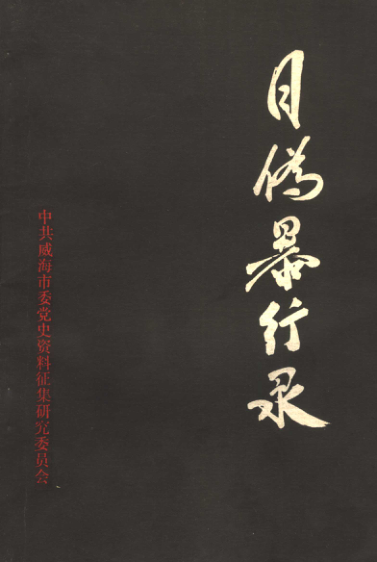 日伪暴行录
中共威海市委党史资料征集研究委员会